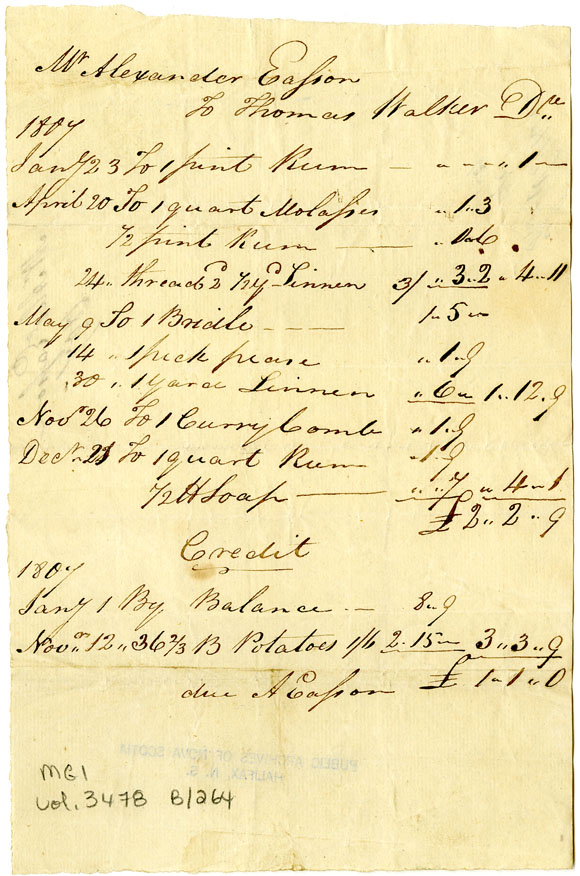 Mr Alexander Easson
To Thomas Walker Dr
1807
Jany 23 To 1 pint Rum — „ „ „ 1 „ —
April 20 To 1 quart Molasses „ 1 „ 3
1/2 pint Rum — „ 0 „ 6
24 „ thread 2d 1/2 yd Linnen 3/ „ 3 „ 2 „ 4 „ 11
May 9 To 1 Bridle — — — 1 „ 5 „ —
14 „ 1 peck pease „ 1 „ 9
30 „ 1 yard Linnen „ 6 „ 1 „ 12 „ 9
Novr 26 To 1 Curry Comb „ 1 „ 9
Decr 21 To 1 quart Rum „ 1 „ 9
1/2 lb Soap — „ „ 7 „ 4 „ 1
£ 2 „ 2 „ 9
Credit
1807
Jany 1 By Balance — 8 „ 9
Novr 12 „ 36 2/3 B Potatoes 1/6 2 „ 15 „ — 3 „ 3 „ 9
due A Easson £ 1 „ 1 „ 0
PUBLIC ARCHIVES OF NOVA SCOTIA
HALIFAX, N. S.
MG1
Vol. 3478 B/264